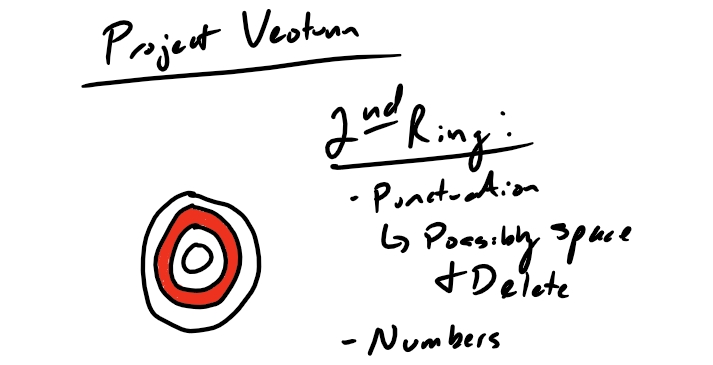 Project Veotunn
2nd Ring:
- Punctuation
↳ Possibly space
+ Delete
- Numbers